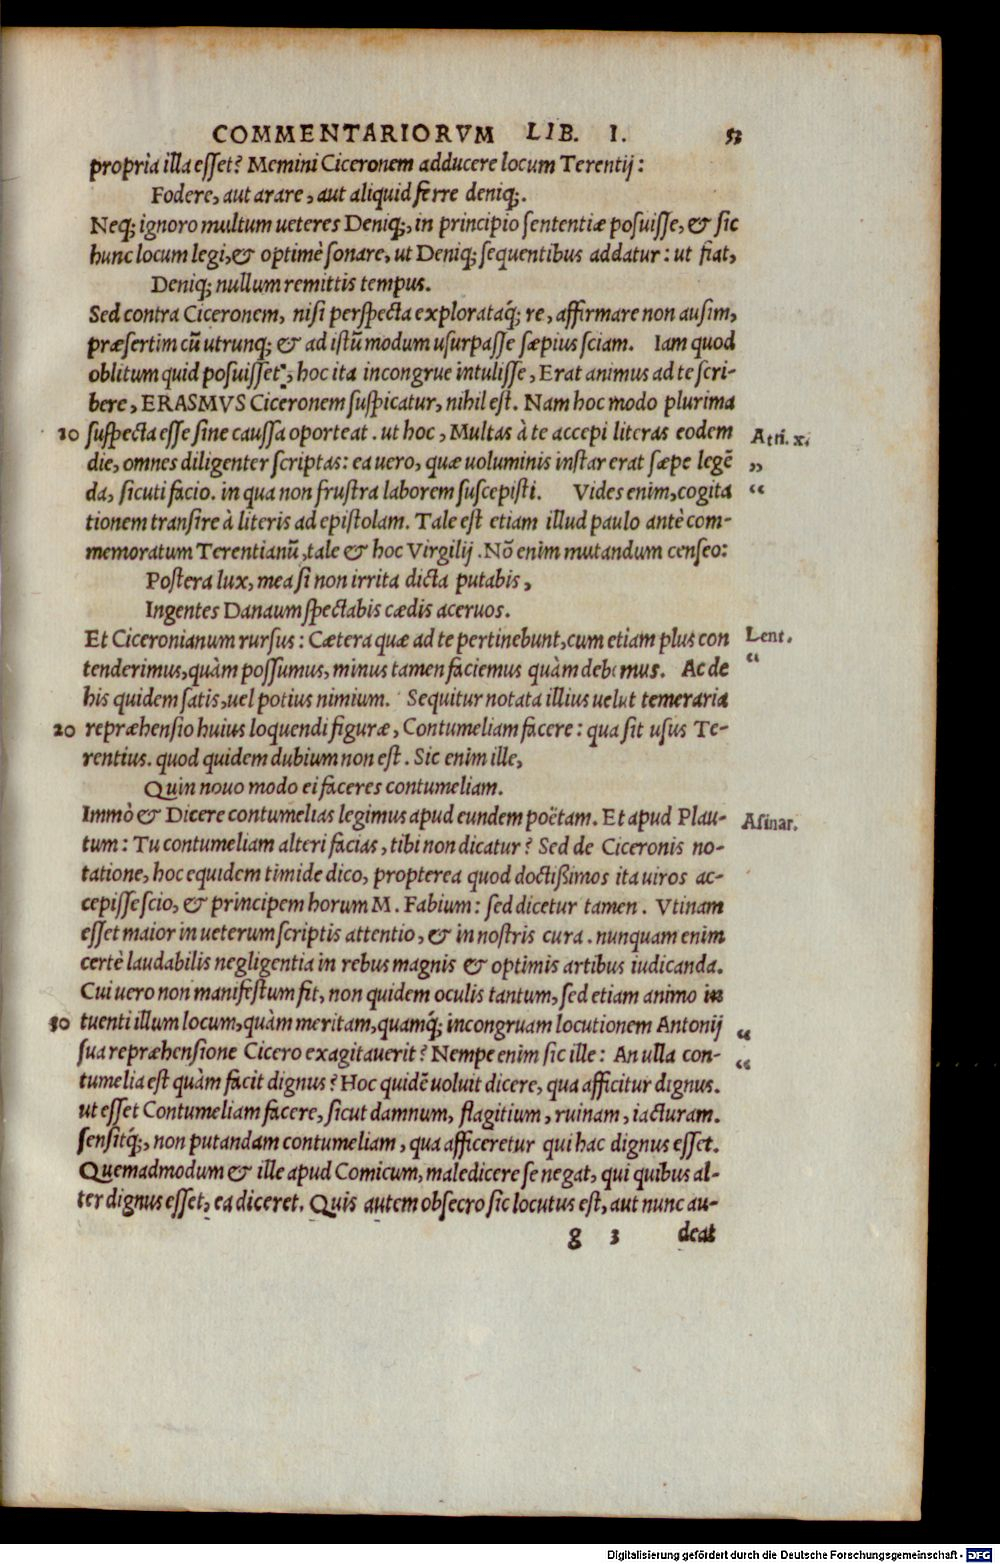 COMMENTARIORVM LIB. I. 53
propria illa esset? Memini Ciceronem adducere locum Terentij:
Fodere, aut arare, aut aliquid ferre deniq;.
Neq; ignoro multum ueteres Deniq;, in principio sententiæ posuisse, & sic
hunc locum legi, & optimè sonare, ut Deniq; sequentibus addatur: ut fiat,
Deniq; nullum remittis tempus.
Sed contra Ciceronem, nisi perspecta explorataq́; re, affirmare non ausim,
præsertim cũ utrunq; & ad istũ modum usurpasse sæpius sciam. Iam quod
oblitum quid posuisset, hoc ita incongrue intulisse, Erat animus ad te scri-
bere, ERASMVS Ciceronem suspicatur, nihil est. Nam hoc modo plurima
10 suspecta esse sine caussa oporteat. ut hoc, Multas à te accepi literas eodem Atti. x.
die, omnes diligenter scriptas: ea uero, quæ uoluminis instar erat sæpe legẽ „
da, sicuti facio. in qua non frustra laborem suscepisti. Vides enim, cogita “
tionem transire à literis ad epistolam. Tale est etiam illud paulo antè com-
memoratum Terentianũ, tale & hoc Virgilij. Nõ enim mutandum censeo:
Postera lux, mea si non irrita dicta putabis,
Ingentes Danaum spectabis cædis aceruos.
Et Ciceronianum rursus: Cætera quæ ad te pertinebunt, cum etiam plus con Lent.
tenderimus, quàm possumus, minus tamen faciemus quàm debemus. Ac de “
his quidem satis, uel potius nimium. Sequitur notata illius uelut temeraria
20 repræhensio huius loquendi figuræ, Contumeliam facere: qua sit usus Te-
rentius. quod quidem dubium non est. Sic enim ille,
Quin nouo modo ei faceres contumeliam.
Immò & Dicere contumelias legimus apud eundem poëtam. Et apud Plau- Asinar.
tum: Tu contumeliam alteri facias, tibi non dicatur? Sed de Ciceronis no-
tatione, hoc equidem timide dico, propterea quod doctißimos ita uiros ac-
cepisse scio, & principem horum M. Fabium: sed dicetur tamen. Vtinam
esset maior in ueterum scriptis attentio, & in nostris cura. nunquam enim
certè laudabilis negligentia in rebus magnis & optimis artibus iudicanda.
Cui uero non manifestum fit, non quidem oculis tantum, sed etiam animo in
30 tuenti illum locum, quàm meritam, quamq́; incongruam locutionem Antonij “
sua repræhensione Cicero exagitauerit? Nempe enim sic ille: An ulla con- “
tumelia est quàm facit dignus? Hoc quidẽ uoluit dicere, qua afficitur dignus.
ut esset Contumeliam facere, sicut damnum, flagitium, ruinam, iacturam.
sensitq́;, non putandam contumeliam, qua afficeretur qui hac dignus esset.
Quemadmodum & ille apud Comicum, maledicere se negat, qui quibus al-
ter dignus esset, ea diceret. Quis autem obsecro sic locutus est, aut nunc au-
g 3 deat
Digitalisierung gefördert durch die Deutsche Forschungsgemeinschaft - DFG